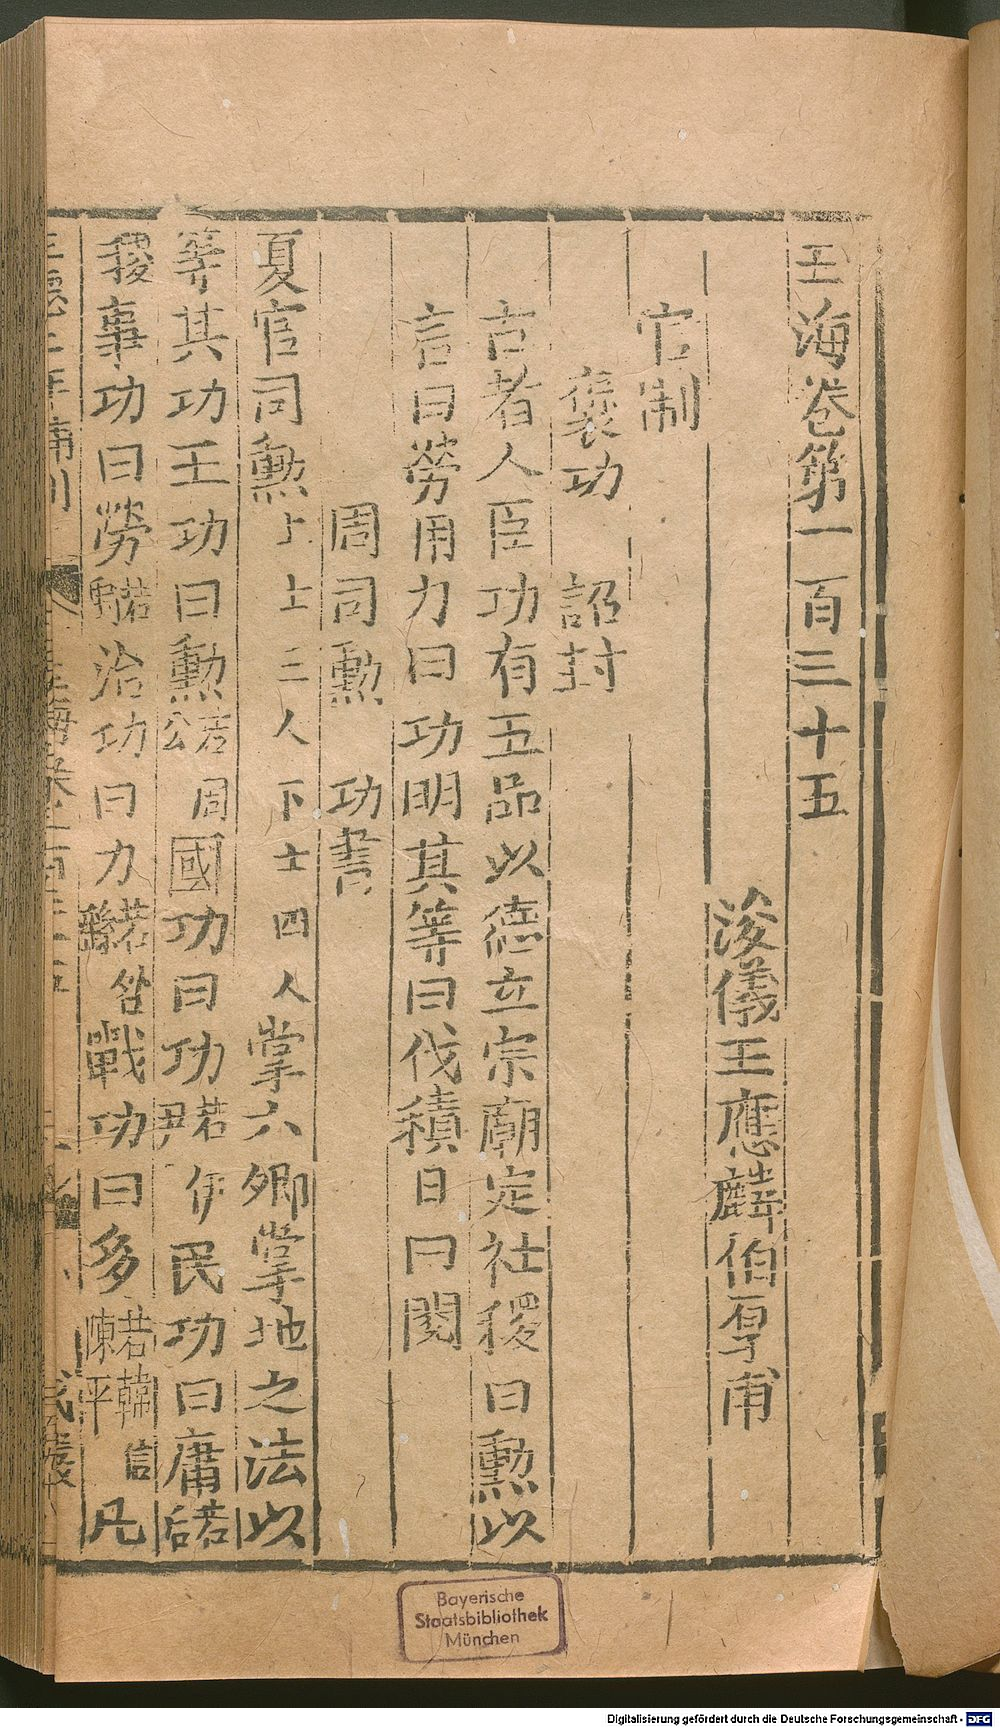 玉海卷第一百三十五
浚儀王應麟伯厚甫
官制
襃功 詔封
古者人臣功有五品以德立宗廟定社稷曰勲以
言曰勞用力曰功明其等曰伐積日曰閱
周司勲 功書
夏官司勲上士二人下士四人掌六卿掌地之法以
等其功王功曰勲若周公國功曰功若伊尹民功曰庸若后
稷事功曰勞若禹治功曰力若咎繇戰功曰多若韓信陳平凡
Bayerische
Staatsbibliothek
München
Digitalisierung gefördert durch die Deutsche Forschungsgemeinschaft - DFG